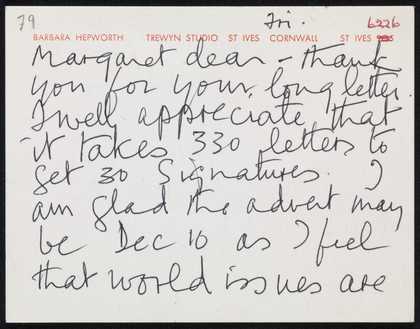 79
Fri.
6226
BARBARA HEPWORTH TREWYN STUDIO ST IVES CORNWALL ST IVES
Margaret dear - thank
you for your long letter.
I well appreciate that
it takes 330 letters to
get 30 signatures. I
am glad the advert may
be Dec 10 as I feel
that world issues are